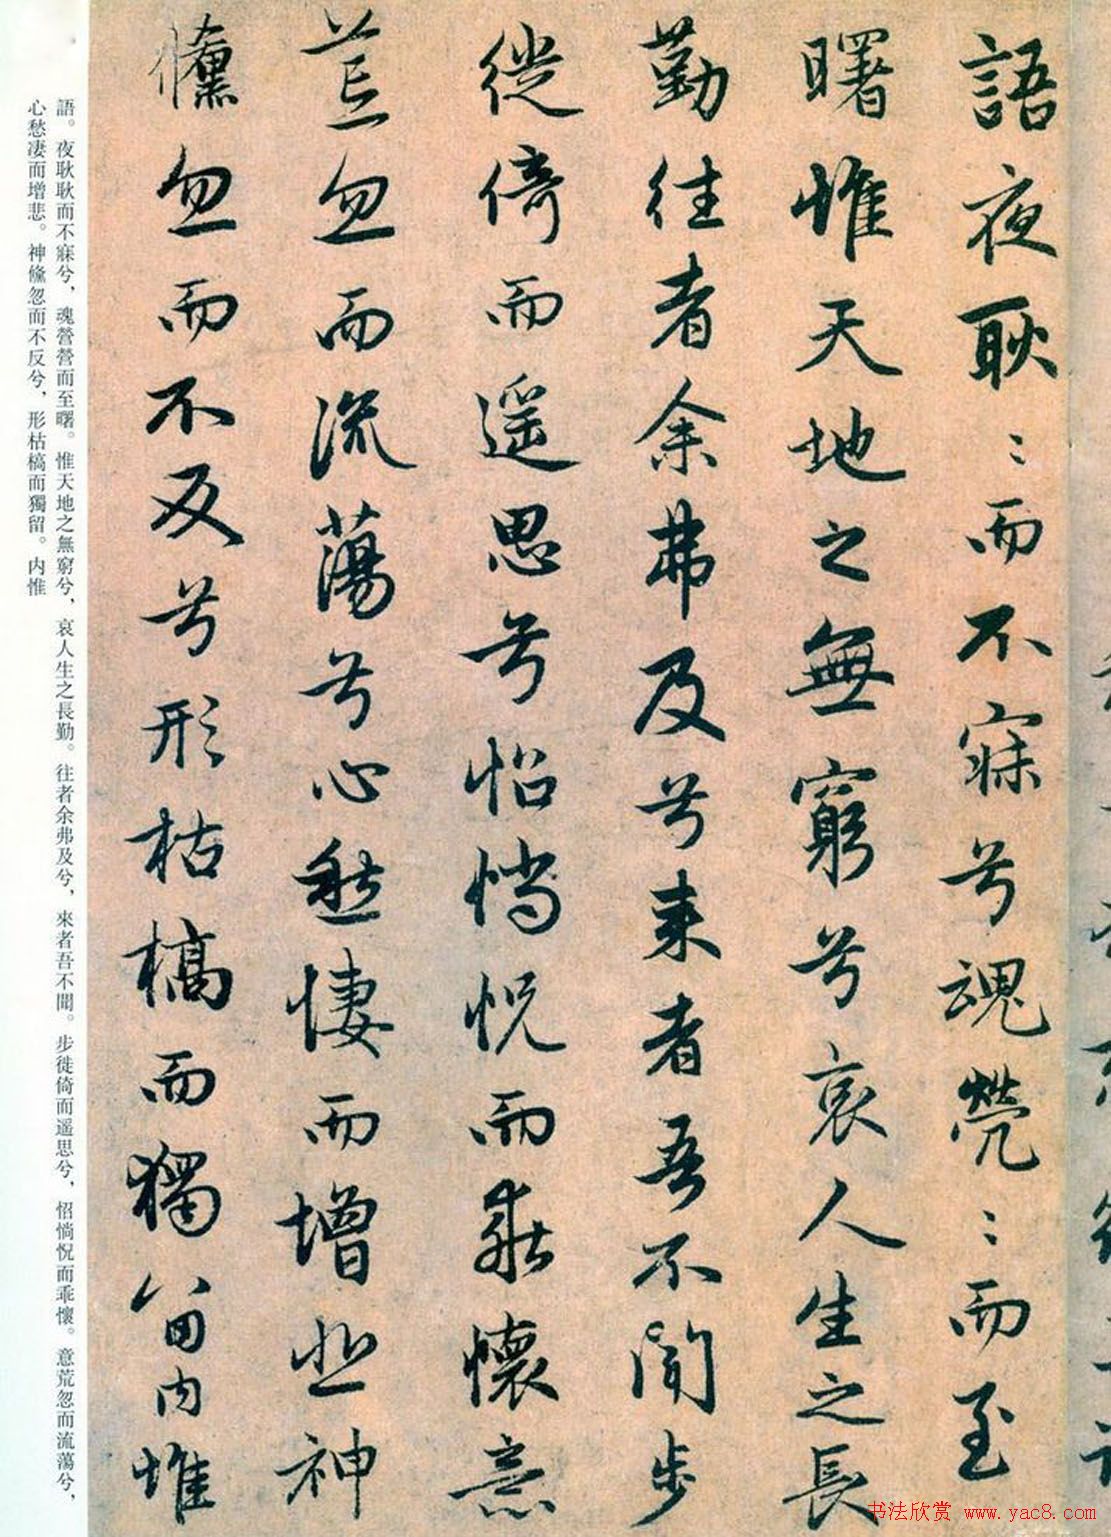 語夜耿〻而不寐兮魂煢〻而至
曙惟天地之無窮兮哀人生之長
勤往者余弗及兮来者吾不聞步
徙倚而遥思兮怊惝怳而乖懷意
荒忽而流蕩兮心愁悽而增悲神
儵忽而不反兮形枯槁而獨留内惟
語。夜耿耿而不寐兮，魂營營而至曙。惟天地之無窮兮，哀人生之長勤。往者余弗及兮，來者吾不聞。步徙倚而遥思兮，怊惝怳而乖懷。意荒忽而流蕩兮，
心愁凄而增悲。神儵忽而不反兮，形枯槁而獨留。内惟
书法欣赏 www.yac8.com